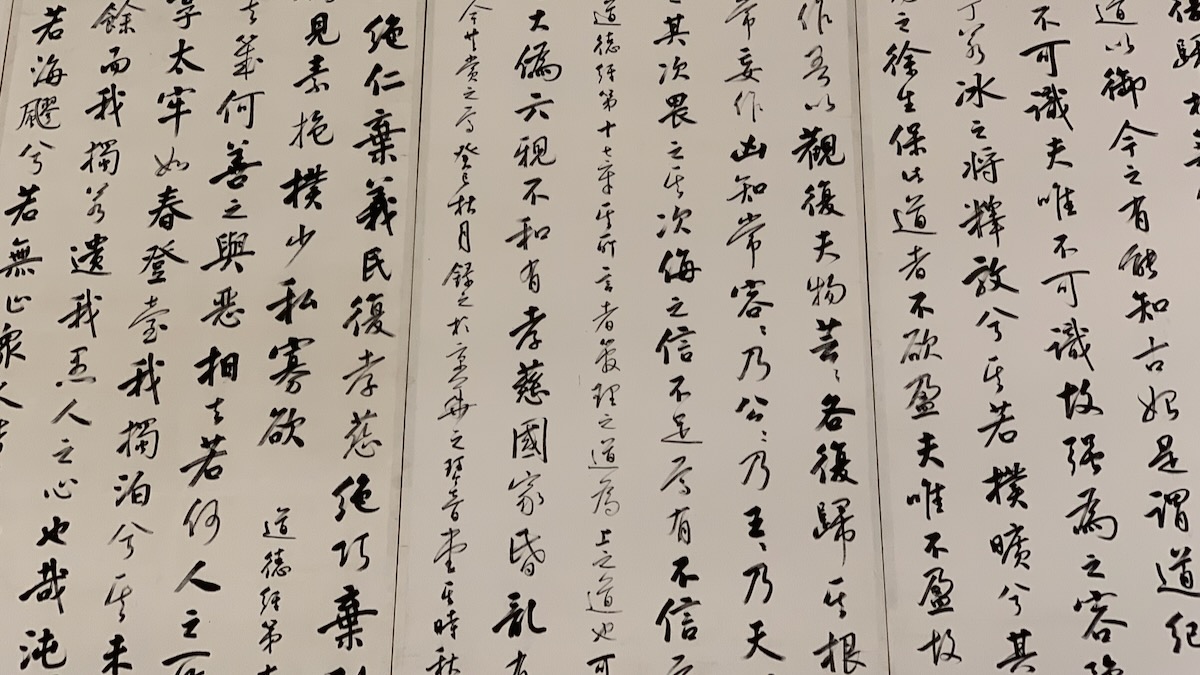 復歸於無
道以御今之有能知古始是謂道紀
不可識夫唯不可識故強為之容
若冰之將釋敦兮其若樸曠兮其
之徐生保此道者不欲盈夫唯不盈故
作吾以觀復夫物芸〻各復歸其根
常妄作凶知常容〻乃公〻乃王〻乃天
其次畏之其次侮之信不足焉有不信
道德經第十七章其所言者管理之道為上之道也可
大偽六親不和有孝慈國家昏亂有
賞之焉癸巳秋月錄之於京華之琴音堂其時秋
絕仁棄義民復孝慈絕巧棄
見素抱樸少私寡欲 道德經第
去幾何善之與惡相去若何人之所
享太牢如春登臺我獨泊兮其未
餘而我獨若遺我愚人之心也哉沌
若海飂兮若無止眾人皆